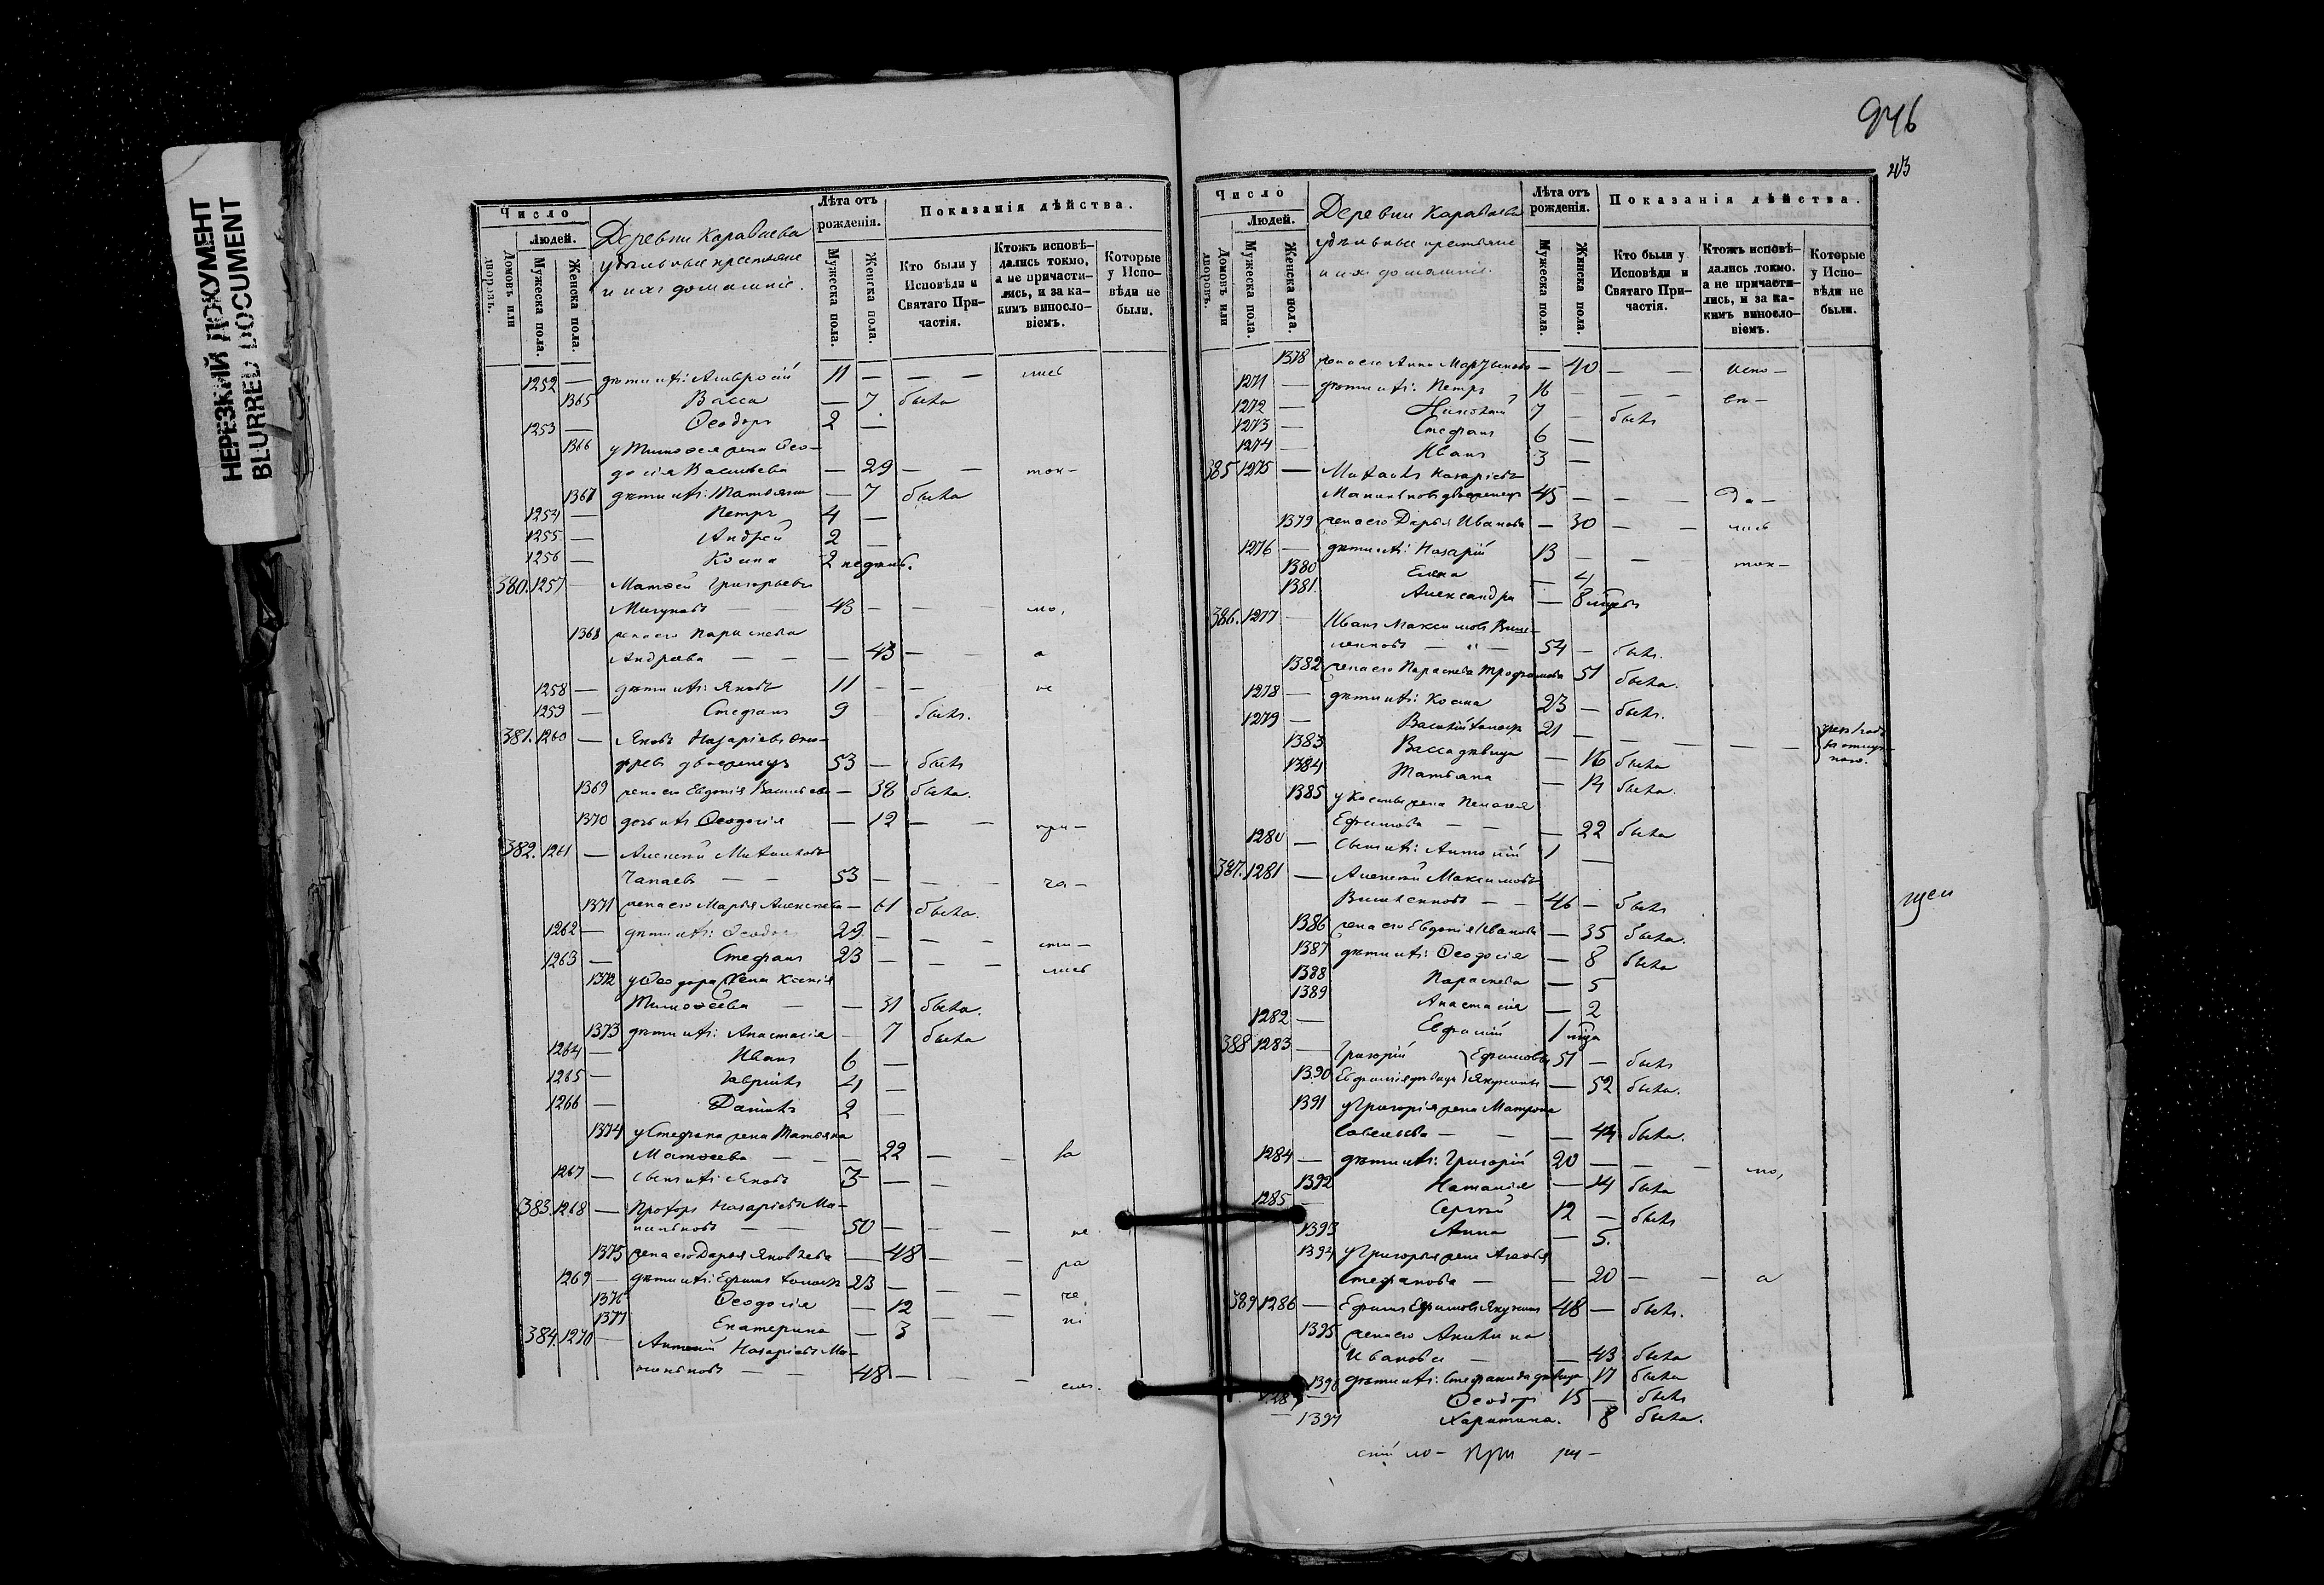 НЕРЕЗКИЙ ДОКУМЕНТ
BLURRED DOCUMENT
Число
Людей.
Домовъ или дворовъ.
Мужеска пола.
Женска пола.
Деревни Караваева
удѣльные крестьяне
и ихъ домашніе.
Лѣта отъ рожденія.
Мужеска пола.
Женска пола.
Показанія дѣйства.
Кто были у Исповѣди и Святаго Причастія.
Ктожъ исповѣдались токмо, а не причастились, и за какимъ винословіемъ.
Которые у Исповѣди не были.
1252 — дѣти ихъ: Амвросій 11 — — — лись
1365 Васса — 7 была
1253 — Ѳеодоръ 2 —
1366 у Тимоѳея жена Ѳео-
досія Васильева — 29 — — ток-
1367 дѣти ихъ: Татьяна — 7 была
1254 — Петръ 4 —
1255 — Андрей 2 —
1256 — Косма 2 недѣль.
380. 1257 — Матѳей Григорьевъ
43 — — — мо,
1368 жена его Параскева
Андреева — — — 43 — — а
1258 — дѣти ихъ: Яковъ 11 — — не
1259 — Стефанъ 9 былъ.
381. 1260 — Яковъ Назаріевъ
53 — былъ
1369 жена его Евдокія Васильева — 38 была.
1370 дочь ихъ Ѳеодосія — 12 — — при-
382. 1261 — Алексѣй Михайловъ
Чапаевъ — — 53 — — — ча-
1371 жена его Марья Алексѣева — 61 была.
1262 — дѣти ихъ: Ѳеодоръ 29 — — — сти-
1263 — Стефанъ 23 — — — лись
1372 у Ѳеодора жена Ксенія
Тимоѳеева — — 31 была.
1373 дѣти ихъ: Анастасія — 7 была
1264 — Иванъ 6 —
1265 — Гавріилъ 4 —
1266 — Даніилъ 2 —
1374 у Стефана жена Татьяна
Матѳеева — — — 22 — — за
1267 — сынъ ихъ Яковъ 3 — —
383. 1268 — Прохоръ Назаріевъ Ма-
— — 50 — — — не
1375 жена его Дарья Яковлева — 48 — — ра
1269 — дѣти ихъ: Ефимъ холостъ 23 — — — че
1376 Ѳеодосія — 12 — — ні
1377 Екатерина — 3
384. 1270 — Антоній Назаріевъ Ма-
— — 48 — — — емъ.
946
Число
Людей.
Домовъ или дворовъ.
Мужеска пола.
Женска пола.
Деревни Караваева
удѣльные крестьяне
и ихъ домашніе.
Лѣта отъ рожденія.
Мужеска пола.
Женска пола.
Показанія дѣйства.
Кто были у Исповѣди и Святаго Причастія.
Ктожъ исповѣдались токмо, а не причастились, и за какимъ винословіемъ.
Которые у Исповѣди не были.
1378 жена его Анна Мартынова — 40 — — испо-
1271 — дѣти ихъ: Петръ 16 — — — вѣ-
1272 — Николай 7 — былъ
1273 — Стефанъ 6 —
1274 — Иванъ 3 —
385 1275 — Михаилъ Назаріевъ
45 — — — да-
1379 жена его Дарья Иванова — 30 — — лись
1276 — дѣти ихъ: Назарій 13 — — — ток-
1380 Елена — 4
1381. Александра — 8 мѣсяцъ
386. 1277 — Иванъ Максимовъ
— — 54 — былъ.
1382 жена его Параскева Трофимова 51 была.
1278 — дѣти ихъ: Косма 23 — былъ.
1279 — Василій холостъ 21 — — — — —
1383 Васса дѣвица — 16 была
1384 Татьяна — 14 была.
1385 у Космы жена Пелагея
Ефимова — — — 22 была
1280 — сынъ ихъ: Антоній 1 —
387. 1281 — Алексѣй Максимовъ
— — 46 — былъ
1386 жена его Евдокія Иванова — 35 была.
1387 дѣти ихъ: Ѳеодосія — 8 была
1388 Параскева — 5
1389 Анастасія — 2
1282 — Евфимій 1
388 1283 — Григорій } Ефимовы 51 — былъ
1390 Евфимія дѣвица — 52 была.
1391 у Григорія жена Матрона
Савельева — — — 44 была.
1284 — дѣти ихъ: Григорій 20 — — — мо,
1392 Наталія — 14 была
1285 — Сергѣй 12 — былъ
1393 Анна — 5.
1394 у Григорья жена Агафья
Стефанова — — 20 — — а
389 1286 — Ефимъ Ефимовъ Якунинъ 48 — былъ.
1395 жена его Акилина
Иванова — — 43 была
1396 дѣти ихъ: Стефанида дѣвица 17 была
1287 — Ѳеодоръ 15 — былъ
1397 Харитина. 8 была.
при